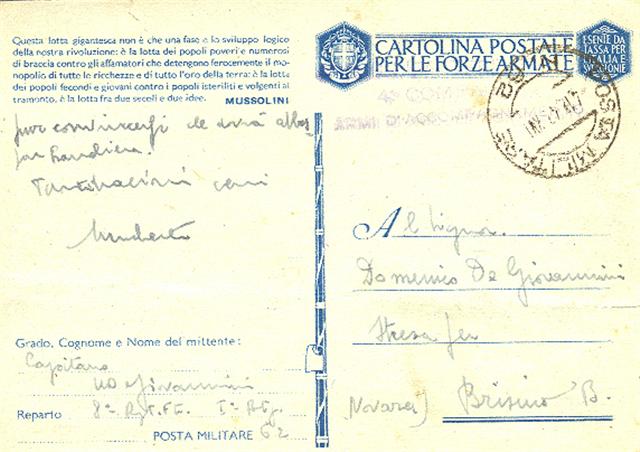 Questa lotta gigantesca non è che una fase e lo sviluppo logico
della nostra rivoluzione: è la lotta dei popoli poveri e numerosi
di braccia contro gli affamatori che detengono ferocemente il mo-
nopolio di tutte le ricchezze e di tutto l'oro della terra: è la lotta
dei popoli fecondi e giovani contro i popoli isteriliti e volgenti al
tramonto, è la lotta fra due secoli e due idee. MUSSOLINI
CARTOLINA POSTALE
PER LE FORZE ARMATE
ESENTE DA
TASSA PER
ITALIA E
POSTA MILITARE
ARMI D'ACCOMPAGNAMENTO
Umberto
Al Signor.
Domenico De Giovannini
Stresa per
(Novara) Brisino B.
Grado, Cognome e Nome del mittente:
Capitano
Giovannini
Reparto 8º Rgt. Ft. Iº Btg.
POSTA MILITARE 62